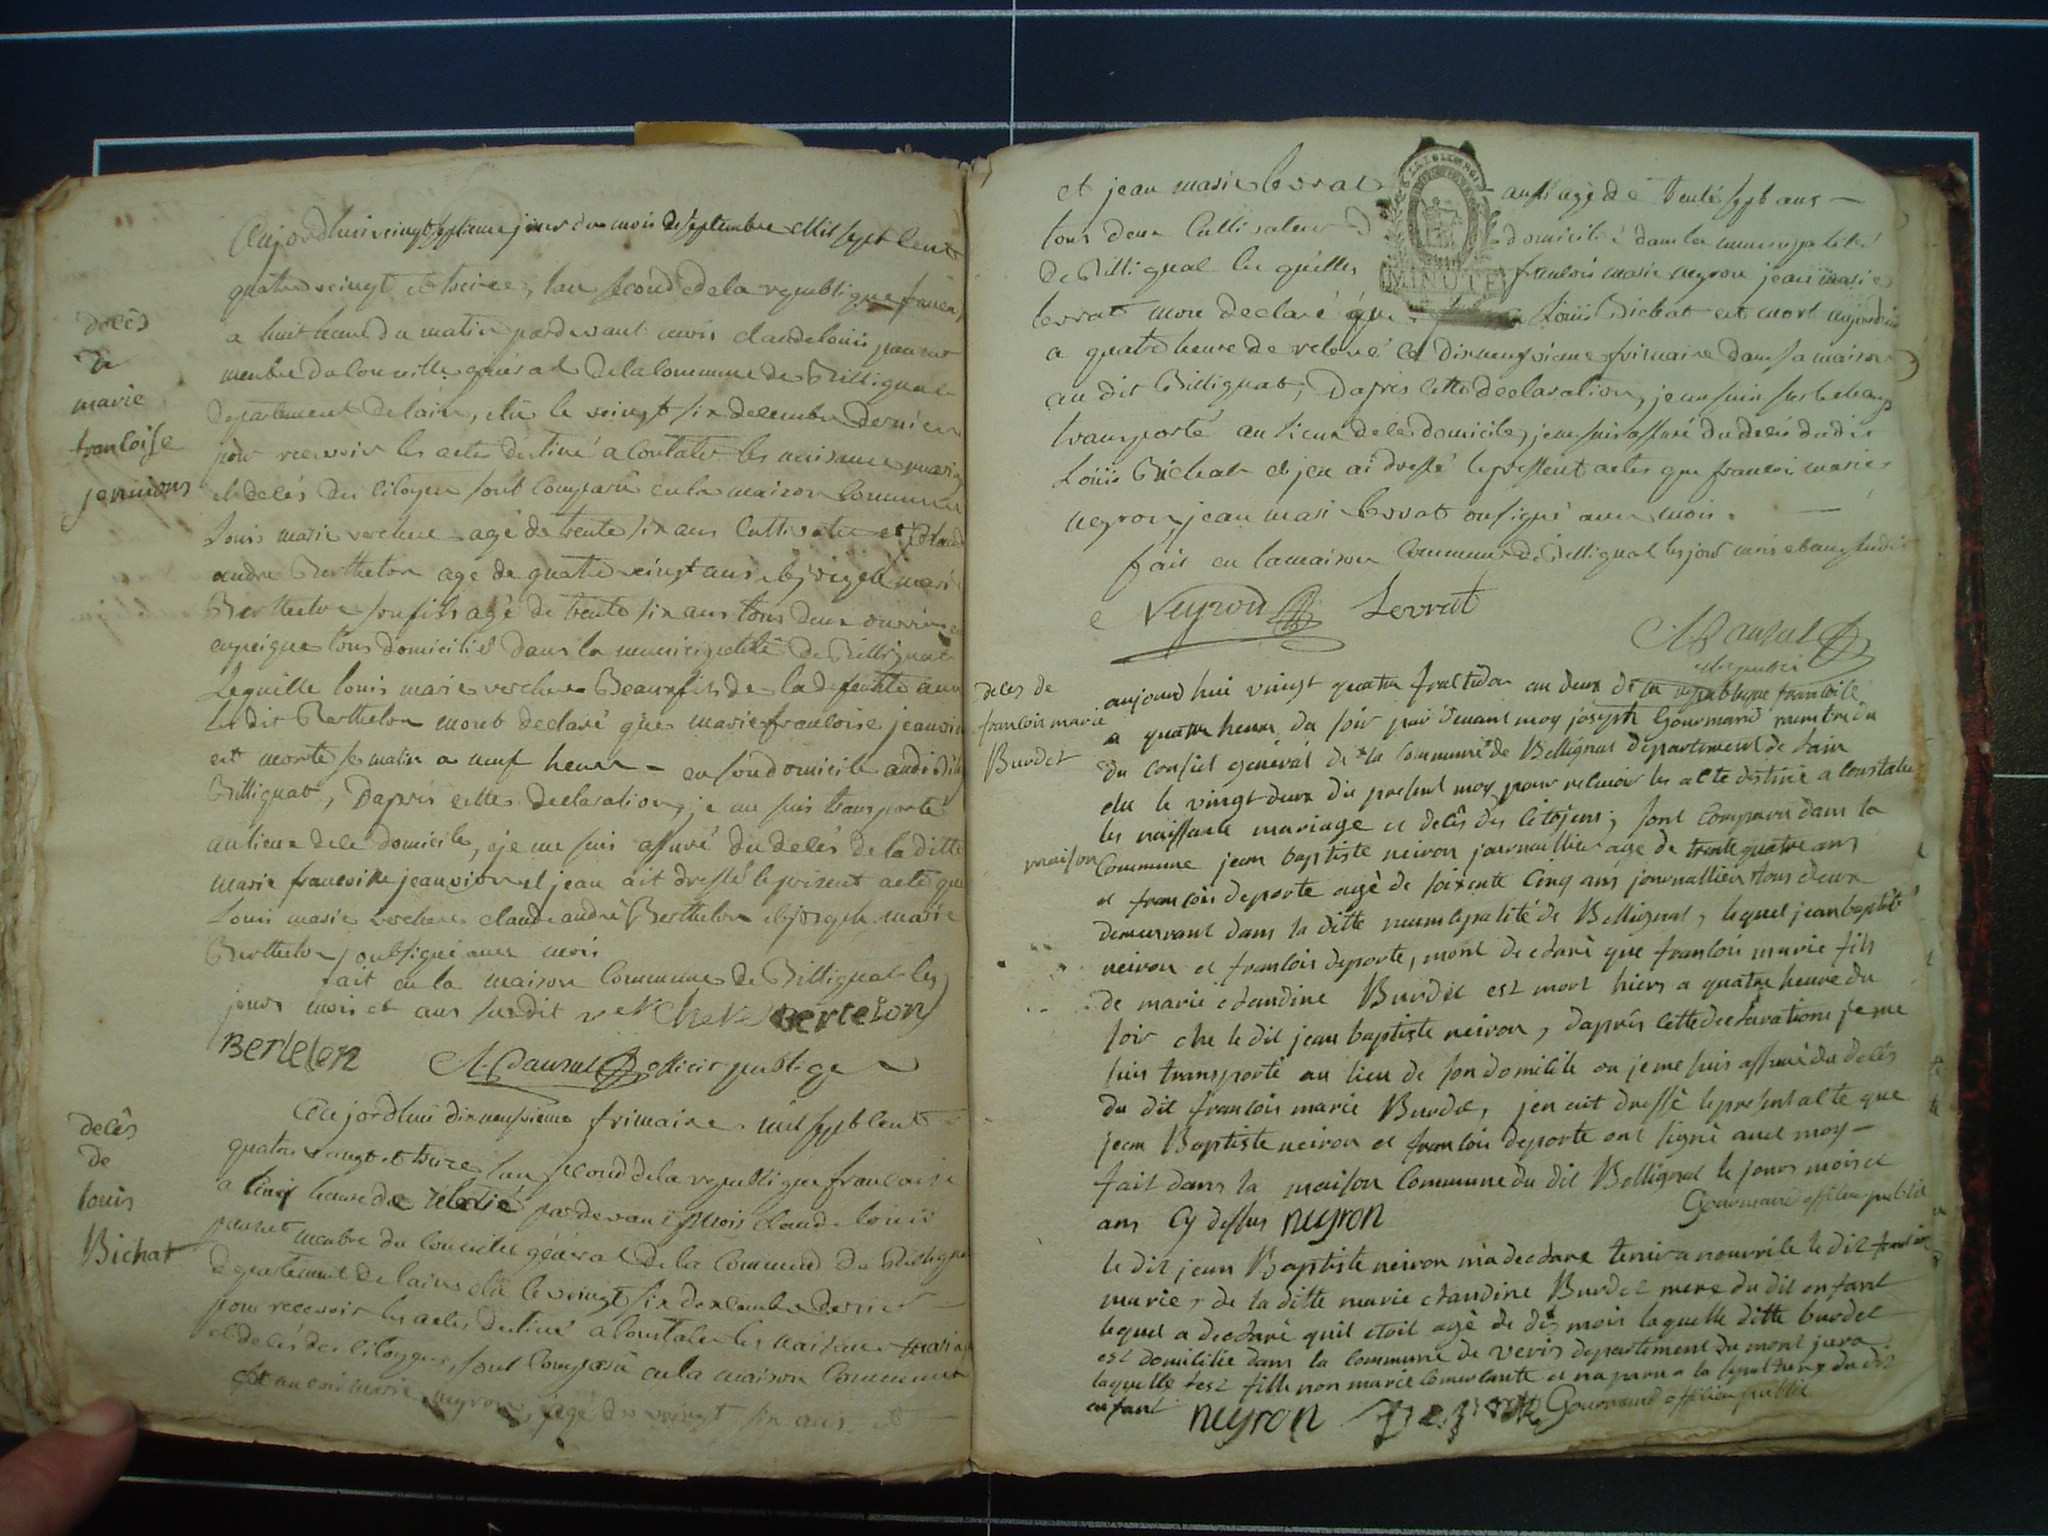 Aujordhui vingt septieme jour du mois de septembre Mil sept Cent
quatre vingt et treize, lan second de la republique francu
a huit heure du matin pardevant mois claude louis pausut
menbre du Conseille général de la Commune de Billignat
departement de lain, élu le vingt six decembre dernier
pour recevoir les acte destiné a Contater les naisance mariag
et decés des Citoyen sont Comparû en la maison Commune
Louis marie verchere agé de trente six ans Cultivateur et Claud
andre Berthelon age de quatre vingt ans et joizeph mari
Berthelon son fils agé de trente six ans tous deux ouvrier
en peigne tous domicilié dans la municipalité de Billignat
Lequille louis marie verchere Beaux fils de la defunte avec
Le dit Berthelon mont declaré que marie francoise jeanvion
est morte se matin a neuf heure en son domicile audi dit
Billignat, Dapres cettes declaration, je me suis transporté
au lieux de le domicile, je me suis assuré du decés de la ditte
marie francoise jeanvion et jean ait dressé le présent acte que
Louis marie verchere claude andré Berthelon et joizeph marie
Berthelon, ont signé avec mois
fait en la maison Commune de Billignat les
jours mois et ans susdit verchere berteLon
Berlelon A. Pausut officier publige
decés
de
marie
francoise
jenvions
Aujordhui dixneufvieme frimaire mil sept Cent
quatre vingt et treize lan second de la republique francoise
a Cinq heure de relevée pardevant mois claude louis
pausut menbre du Conseille général de la Commune de Billigna
departement de lain élu le vingt six decembre dernier
pour recevoir les actes destiné a Constater les naisance maria
et decés des Citoyens, sont Comparû en la maison Commune
francoi marie neyron, agé de vingt six ans et
decés
de
louis
Bichat
et jean marie levrat aussi agé de trente sept ans
tous deux Cultivateur domicilié dans la municipalité
de Billignat les quelles francois marie neyron jean marie
levrat mon declaré que Louis Bichat est mort aujordui
a quatre heure de relevé le dixneufvieme frimaire dans sa maison
au dit Billignat, Dapres cette declaration, je me suis sur le champ
transporté au lieux de le domicile, je me suis assuré du decés du dit
Louis Bichat et jen ai dressé le present actes que francoi marie
neyron, jean mari levrat on signé avec mois.
fait en la maison Commune de Billignat les jour mois et ans susdit
Neyron Levrat
A Pausut
officier publi
decés de
francois marie
Burdet
aujourd hui vingt quatre fructidor an deux de la republique francoise
a quatre heure du soir par devant moy joseph Gourmand membre du
du consiel général de la commune de Bellignat departement de lain
élu le vingt deux du present moy pour recevoir les acte destiné a constater
les naissance mariage et décês des citojens, sont comparu dans la
maison Commune jean baptiste neiron journallier age de trente quatre ans
et francois deporte agé de soixente cinq ans journallier tous deux
demeurant dans la ditte municipalité de Bellignat, lequel jean baptiste
neiron et francois deporte, mont declaré que francois marie fils
de marie claudine Burdet est mort hiers a quatre heure du
soir che le dit jean baptiste neiron, daprês cette declaration je me
suis transporté au lieu de son domicile ou je me suis assuré du decés
du dit francois marie Burdet, jen ait dressé le present acte que
jean Baptiste neiron et francois deporte ont signé avec moy
fait dans la maison Commune du dit Bellignat le jours mois et
ans Cy dessus neyron Gourmand officier public
le dit jean Baptiste neiron ma declare tenir a nourrice le dit francoi
marie, de la ditte marie claudine Burdet mere du dit enfant
lequel a declaré quil etoit agé de dix mois laquelle ditte burdet
est domicilie dans la commune de veris departement du mont jura
laquelle fest fille non marie et na paru a la sepulture du dit
enfant neyron Gourmand officier public
MINUTE